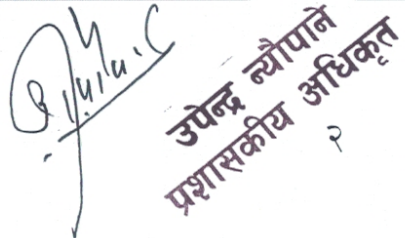 उपेन्द्र न्यौपाने
प्रशासकीय अधिकृत
२